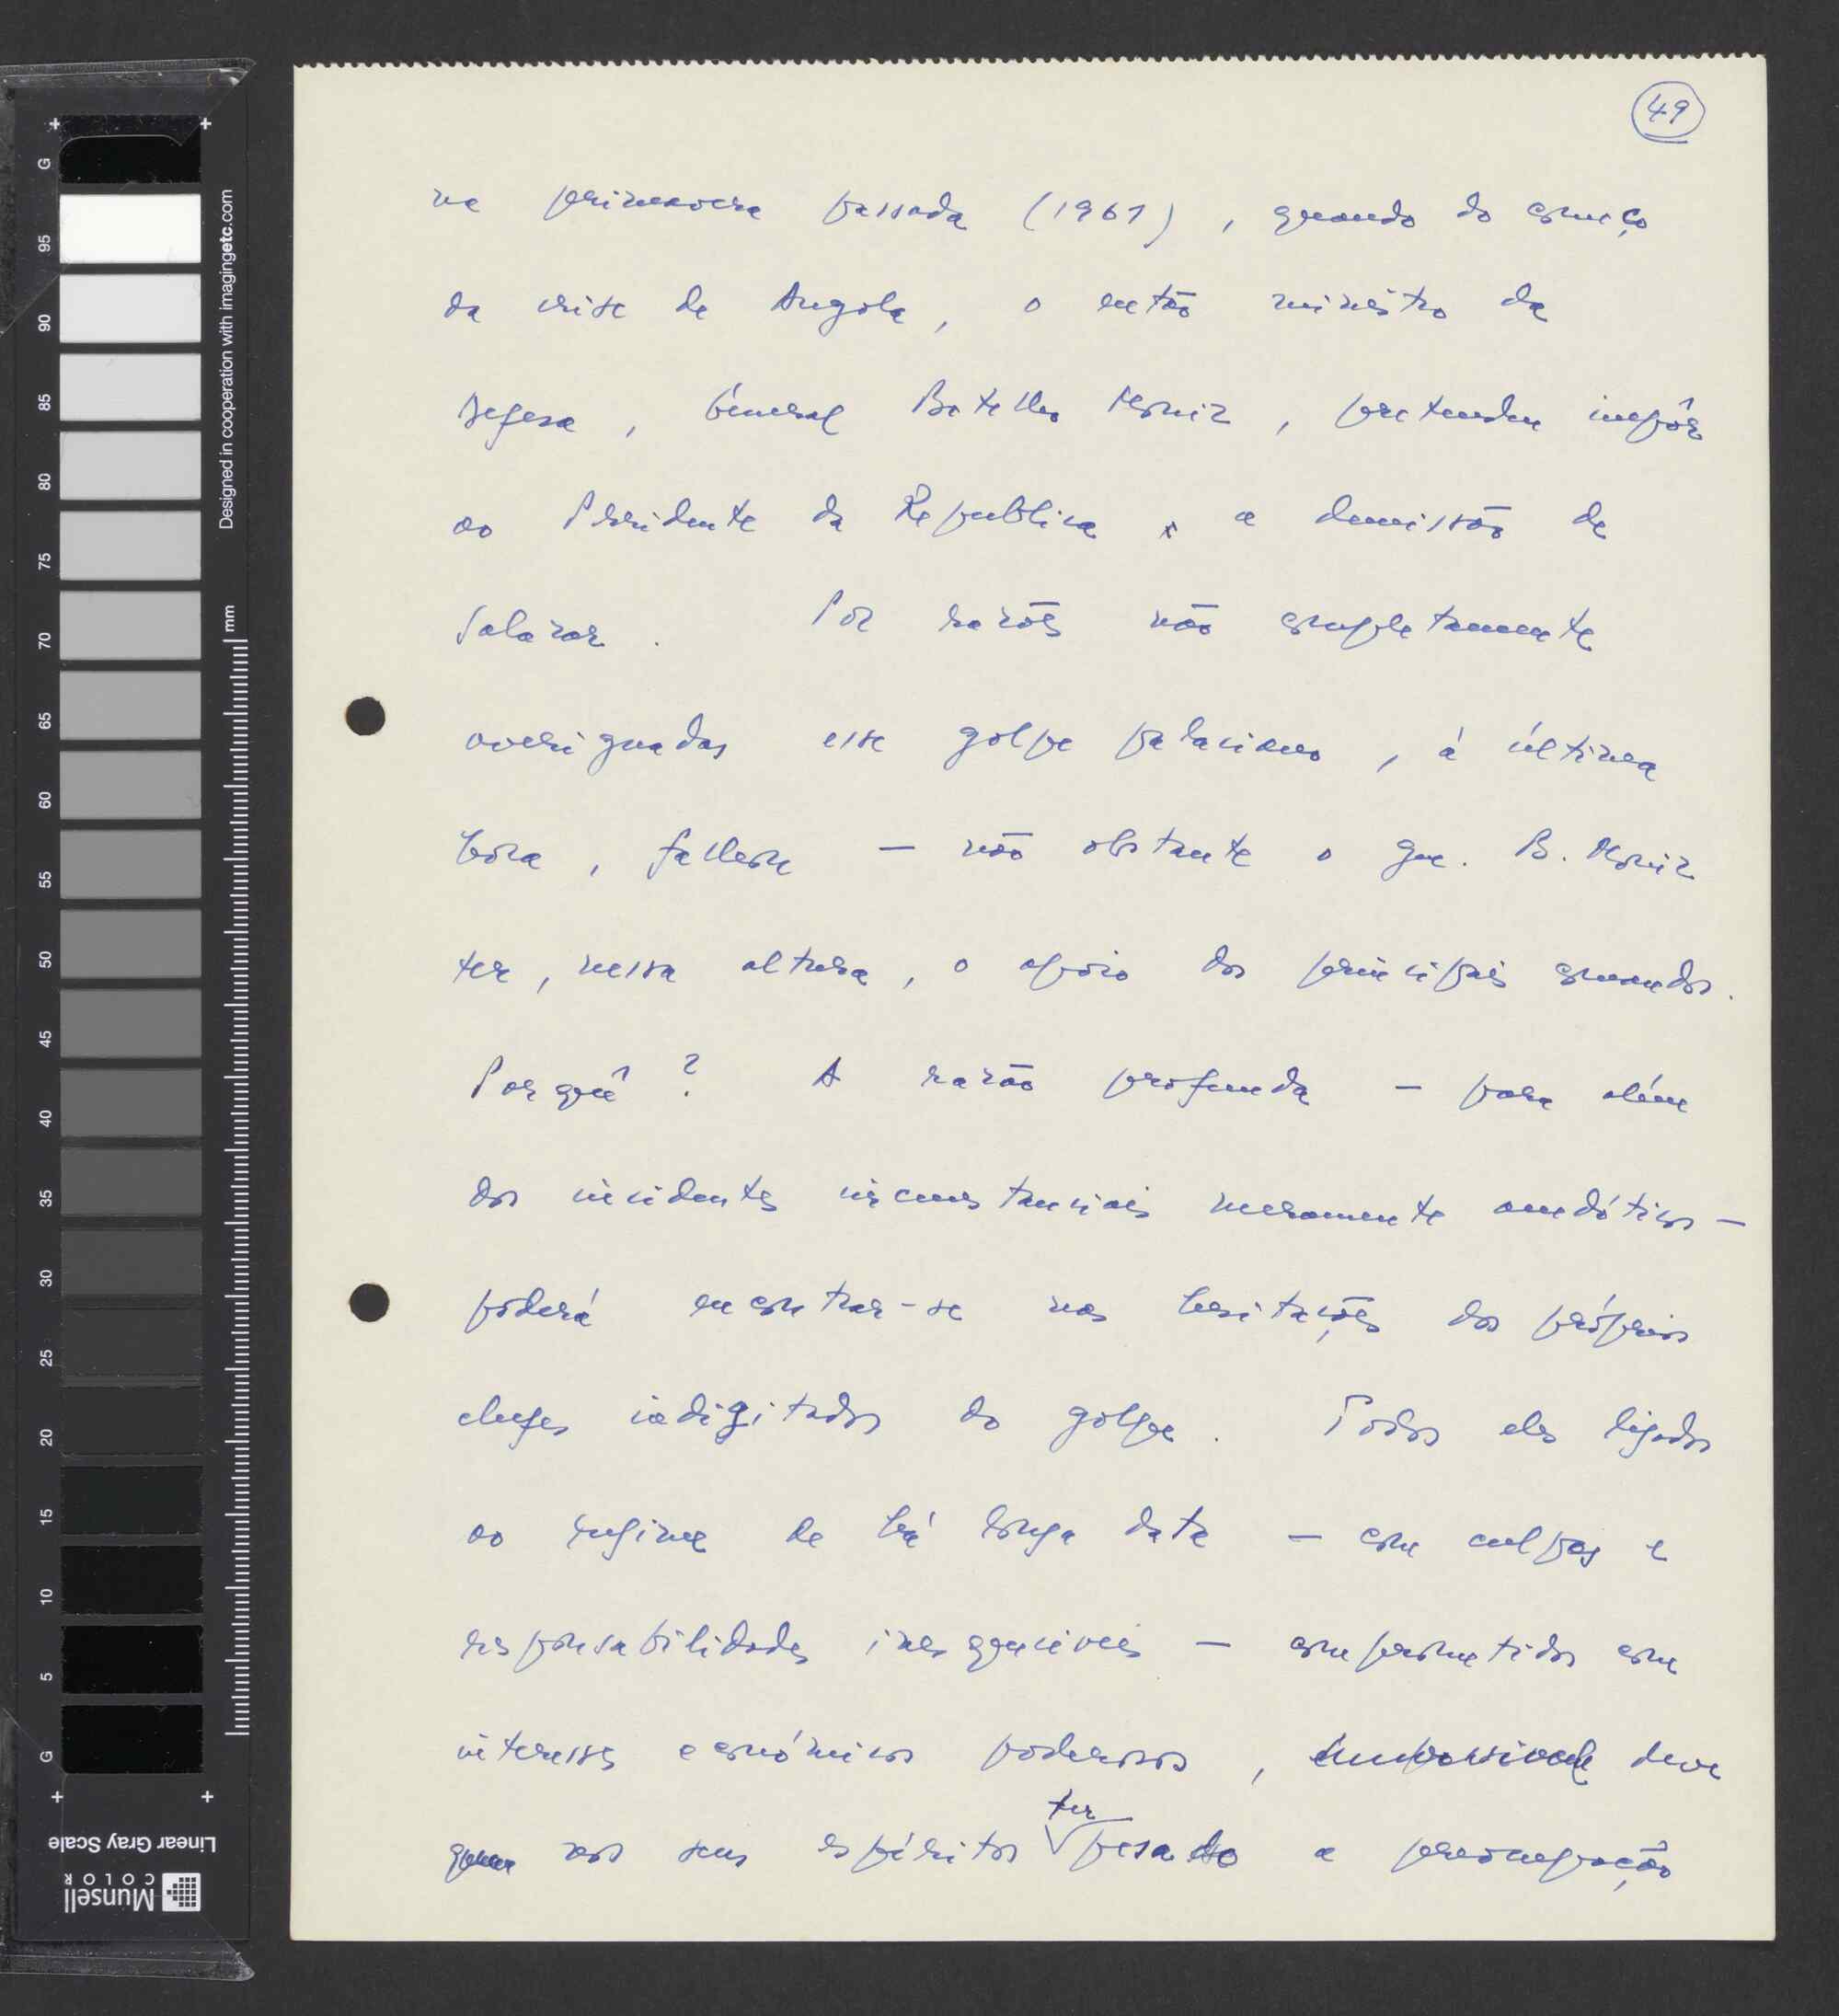 49
na primavera passada (1961), quando do começo
da crise de Angola, o então ministro da
Defesa, General Botelho Moniz, pretendeu impôr
ao Presidente da Republica a demissão de
Salazar. Por razões não completamente
averiguadas esse golpe palaciano, à última
hora, falhou — não obstante o gen. B. Moniz
ter, nessa altura, o apoio dos principais comandos.
Porquê? A razão profunda — para além
dos incidentes circunstanciais meramente anedóticos —
poderá encontrar-se nas hesitações dos próprios
chefes indigitados do golpe. Todos eles ligados
ao regime de há longa data — com culpas e
responsabilidades inesquecíveis — comprometidos com
interesses económicos poderosos, deve
nos seus espíritos ter pesado a preocupação
Designed in cooperation with imagingetc.com
mm
G
95
90
85
80
75
70
65
60
55
50
45
40
35
30
25
20
15
10
5
G
Linear Gray Scale
Munsell
COLOR